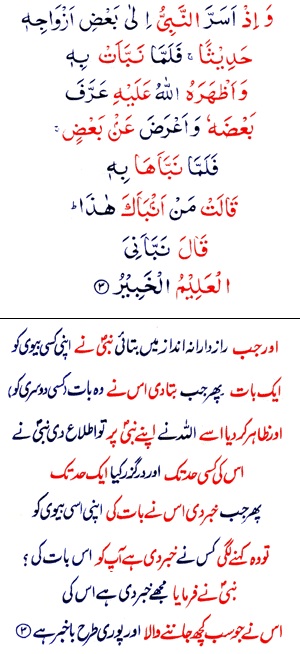 وَ اِذْ اَسَرَّ النَّبِیُّ اِلٰی بَعْضِ اَزْوَاجِهٖ
حَدِیْثًا ۚ فَلَمَّا نَبَّاَتْ بِهٖ
وَاَظْهَرَهُ اللّٰهُ عَلَیْهِ عَرَّفَ
بَعْضَهٗ وَاَعْرَضَ عَنْۢ بَعْضٍ ۚ
فَلَمَّا نَبَّاَهَا بِهٖ
قَالَتْ مَنْ اَنْۢبَاَكَ هٰذَا ؕ
قَالَ نَبَّاَنِیَ
الْعَلِیْمُ الْخَبِیْرُ ۝۳
اور جب رازدارانہ انداز میں بتائی نبیؐ نے اپنی کسی بیوی کو
ایک بات پھر جب بتا دی اس نے وہ بات (کسی دوسری کو)
اور ظاہر کر دیا اسے اللہ نے اپنے نبیؐ پر تو اطلاع دی نبیؐ نے
اس کی کسی حد تک اور درگزر کیا ایک حد تک
پھر جب خبر دی اس نے بات کی اپنی اسی بیوی کو
تو وہ کہنے لگی کس نے خبر دی ہے آپ کو اس بات کی ؟
نبیؐ نے فرمایا مجھے خبر دی ہے اس کی
اس نے جو سب کچھ جاننے والا اور پوری طرح باخبر ہے ۝۳